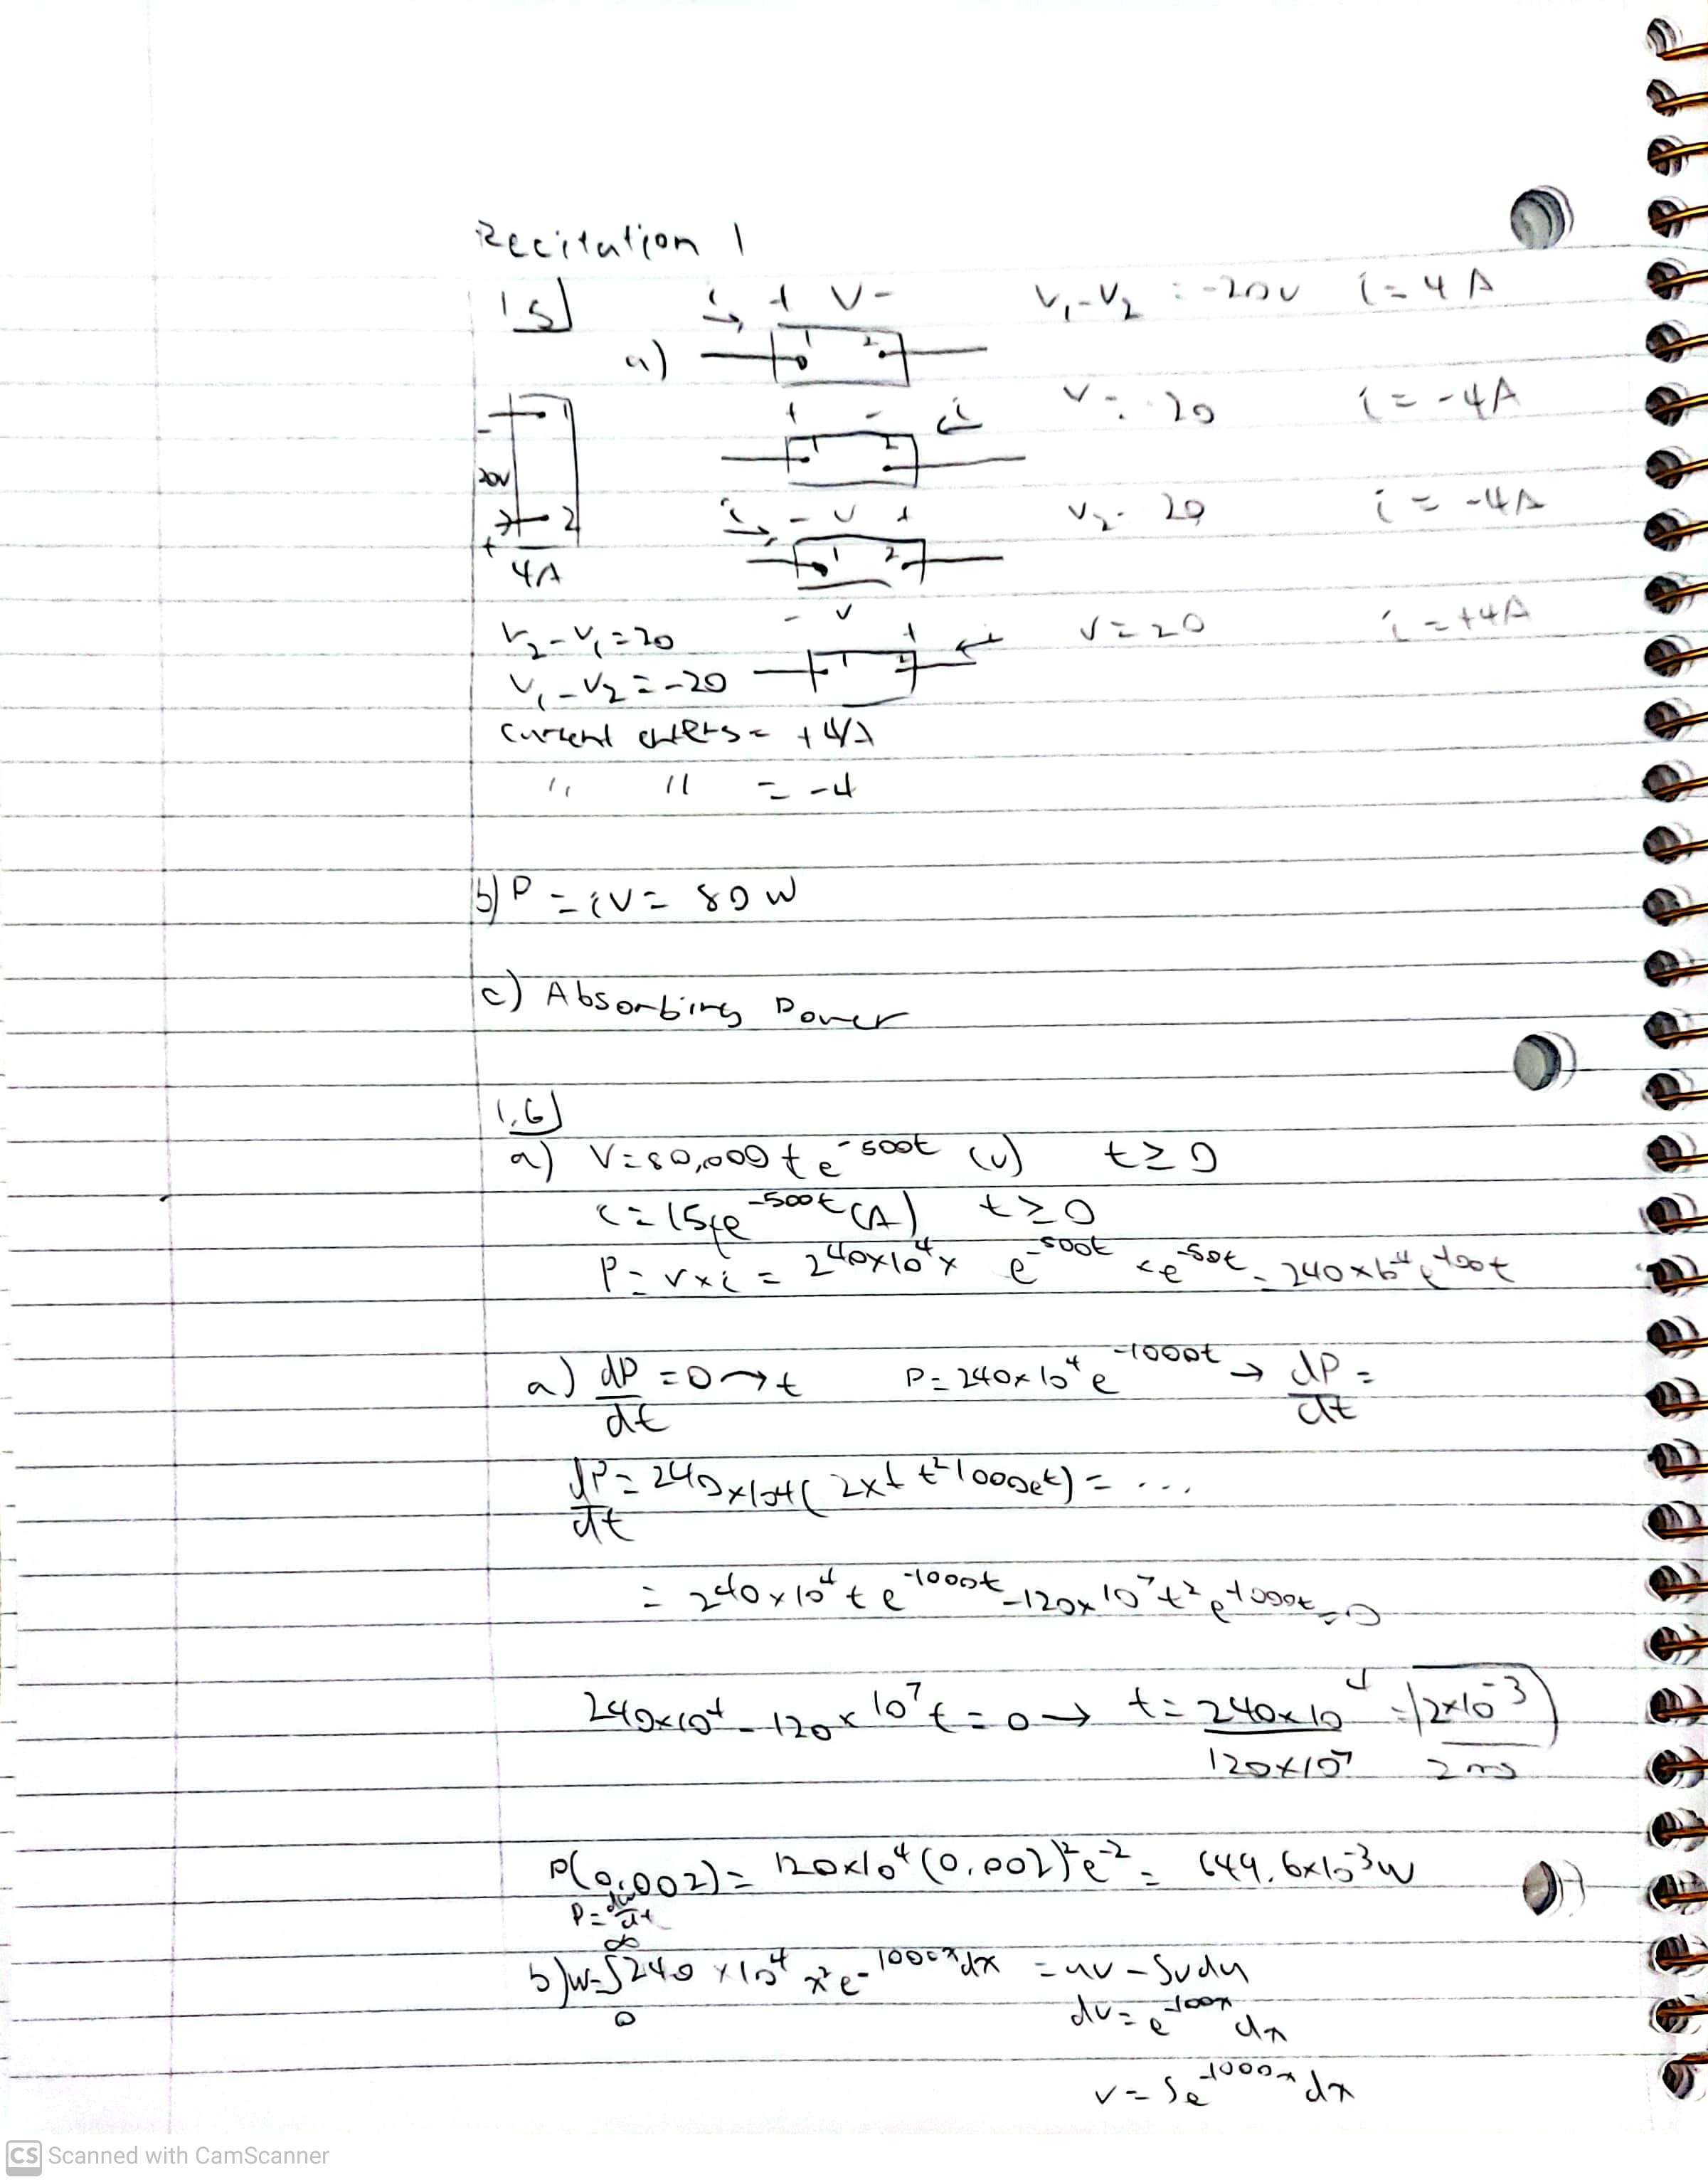 Recitation 1
1.5]
i + V - V₁-V₂ = -20V i = 4 A
a) 1 2
+ - i V = -20 i = -4A
1 2
- 1
20V
+ 2
4A
i - V + V = 20 i = -4A
1 2
- V + i V = 20 i = +4A
1 2
V₂-V₁ = 20
V₁-V₂ = -20
Current enters = +4A
" " = -4
b) P = iV = 80 W
c) Absorbing Power
1.6]
a) V = 80,000 t e^-500t (V) t ≥ 0
i = 15 t e^-500t (A) t ≥ 0
P = v x i = 240x10⁴ x e^-500t x e^-50t = 240x10⁴ e^-100t
a) dP/dt = 0 → t P = 240x10⁴ e^-1000t → dP/dt =
dP/dt = 240x10⁴( 2xt t² 1000et) = ...
= 240x10⁴ t e^-1000t - 120x10⁷ t² e^-1000t = 0
240x10⁴ - 120x10⁷ t = 0 → t = 240x10⁴/120x10⁷ = 2x10⁻³
2ms
P(0.002) = 120x10⁴ (0.002)² e⁻² = 649.6x10⁻³ W
P = dw/dt
b) W = ∫₀^∞ 240 x 10⁴ x² e^-1000x dx = uv - ∫v du
dv = e^-100x dx
v = ∫e^-1000x dx
CS Scanned with CamScanner